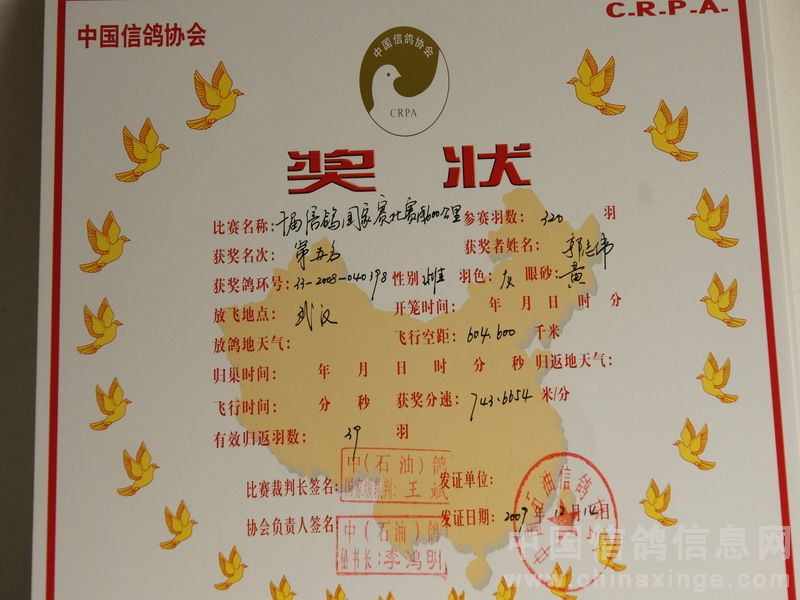 C-R-P-A-
中国信鸽协会
中国信鸽协会
CRPA
奖 状
比赛名称：十届信鸽国家赛北赛600公里 参赛羽数：320 羽
获奖名次：第五名 获奖者姓名：郭志伟
获奖鸽环号：33-2008-040398 性别：雄 羽色：灰 眼砂：黄
放飞地点：武汉 开笼时间： 年 月 日 时 分
放鸽地天气： 飞行空距：604.600 千米
归巢时间： 年 月 日 时 分 秒 归返地天气：
飞行时间： 分 秒 获奖分速：743.6654 米/分
有效归返羽数：39 羽
比赛裁判长签名： 中（石油）鸽 发证单位：
国家级裁判：王斌
协会负责人签名： 中（石油）鸽 发证日期：2009年12月14日
秘书长：李鸿明
石油信鸽
中国信鸽信息网
www.chinaxinge.com